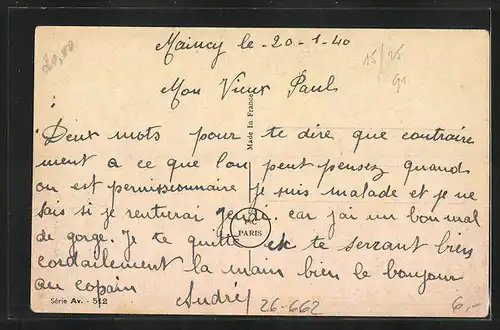 20,00
Maincy le - 20 - 1 - 40
15/25
G1
Mon Vieux Paul
Made in France
Deux mots pour te dire que contraire
ment a ce que l'on peut pensez quand
on est permissionnaire je suis malade et je ne
sais si je renturai Jeudi. car j'ai un bon mal
de gorge. Je te quitte en te serrant bien
PARIS
cordailement la main bien le bonjour
au copain
André
Série Av. - 512
26-662
6,-